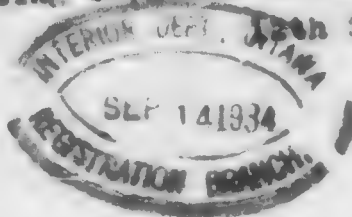 INTERIOR DEPT. OTTAWA
SEP 14 1934
REGISTRATION BRANCH.